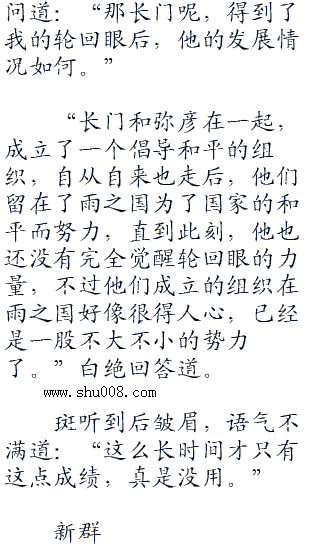 问道：“那长门呢，得到了
我的轮回眼后，他的发展情
况如何。”
“长门和弥彦在一起，
成立了一个倡导和平的组
织，自从自来也走后，他们
留在了雨之国为了国家的和
平而努力，直到此刻，他也
还没有完全觉醒轮回眼的力
量，不过他们成立的组织在
雨之国好像很得人心，已经
是一股不大不小的势力
了。”白绝回答道。
www.shu008.com
斑听到后皱眉，语气不
满道：“这么长时间才只有
这点成绩，真是没用。”
新群